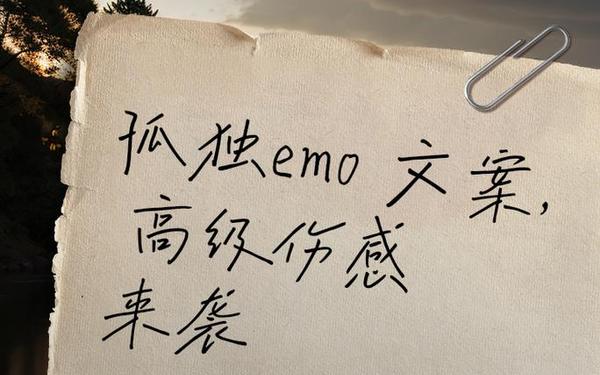 孤独emo 文案,
高级伤感
来袭